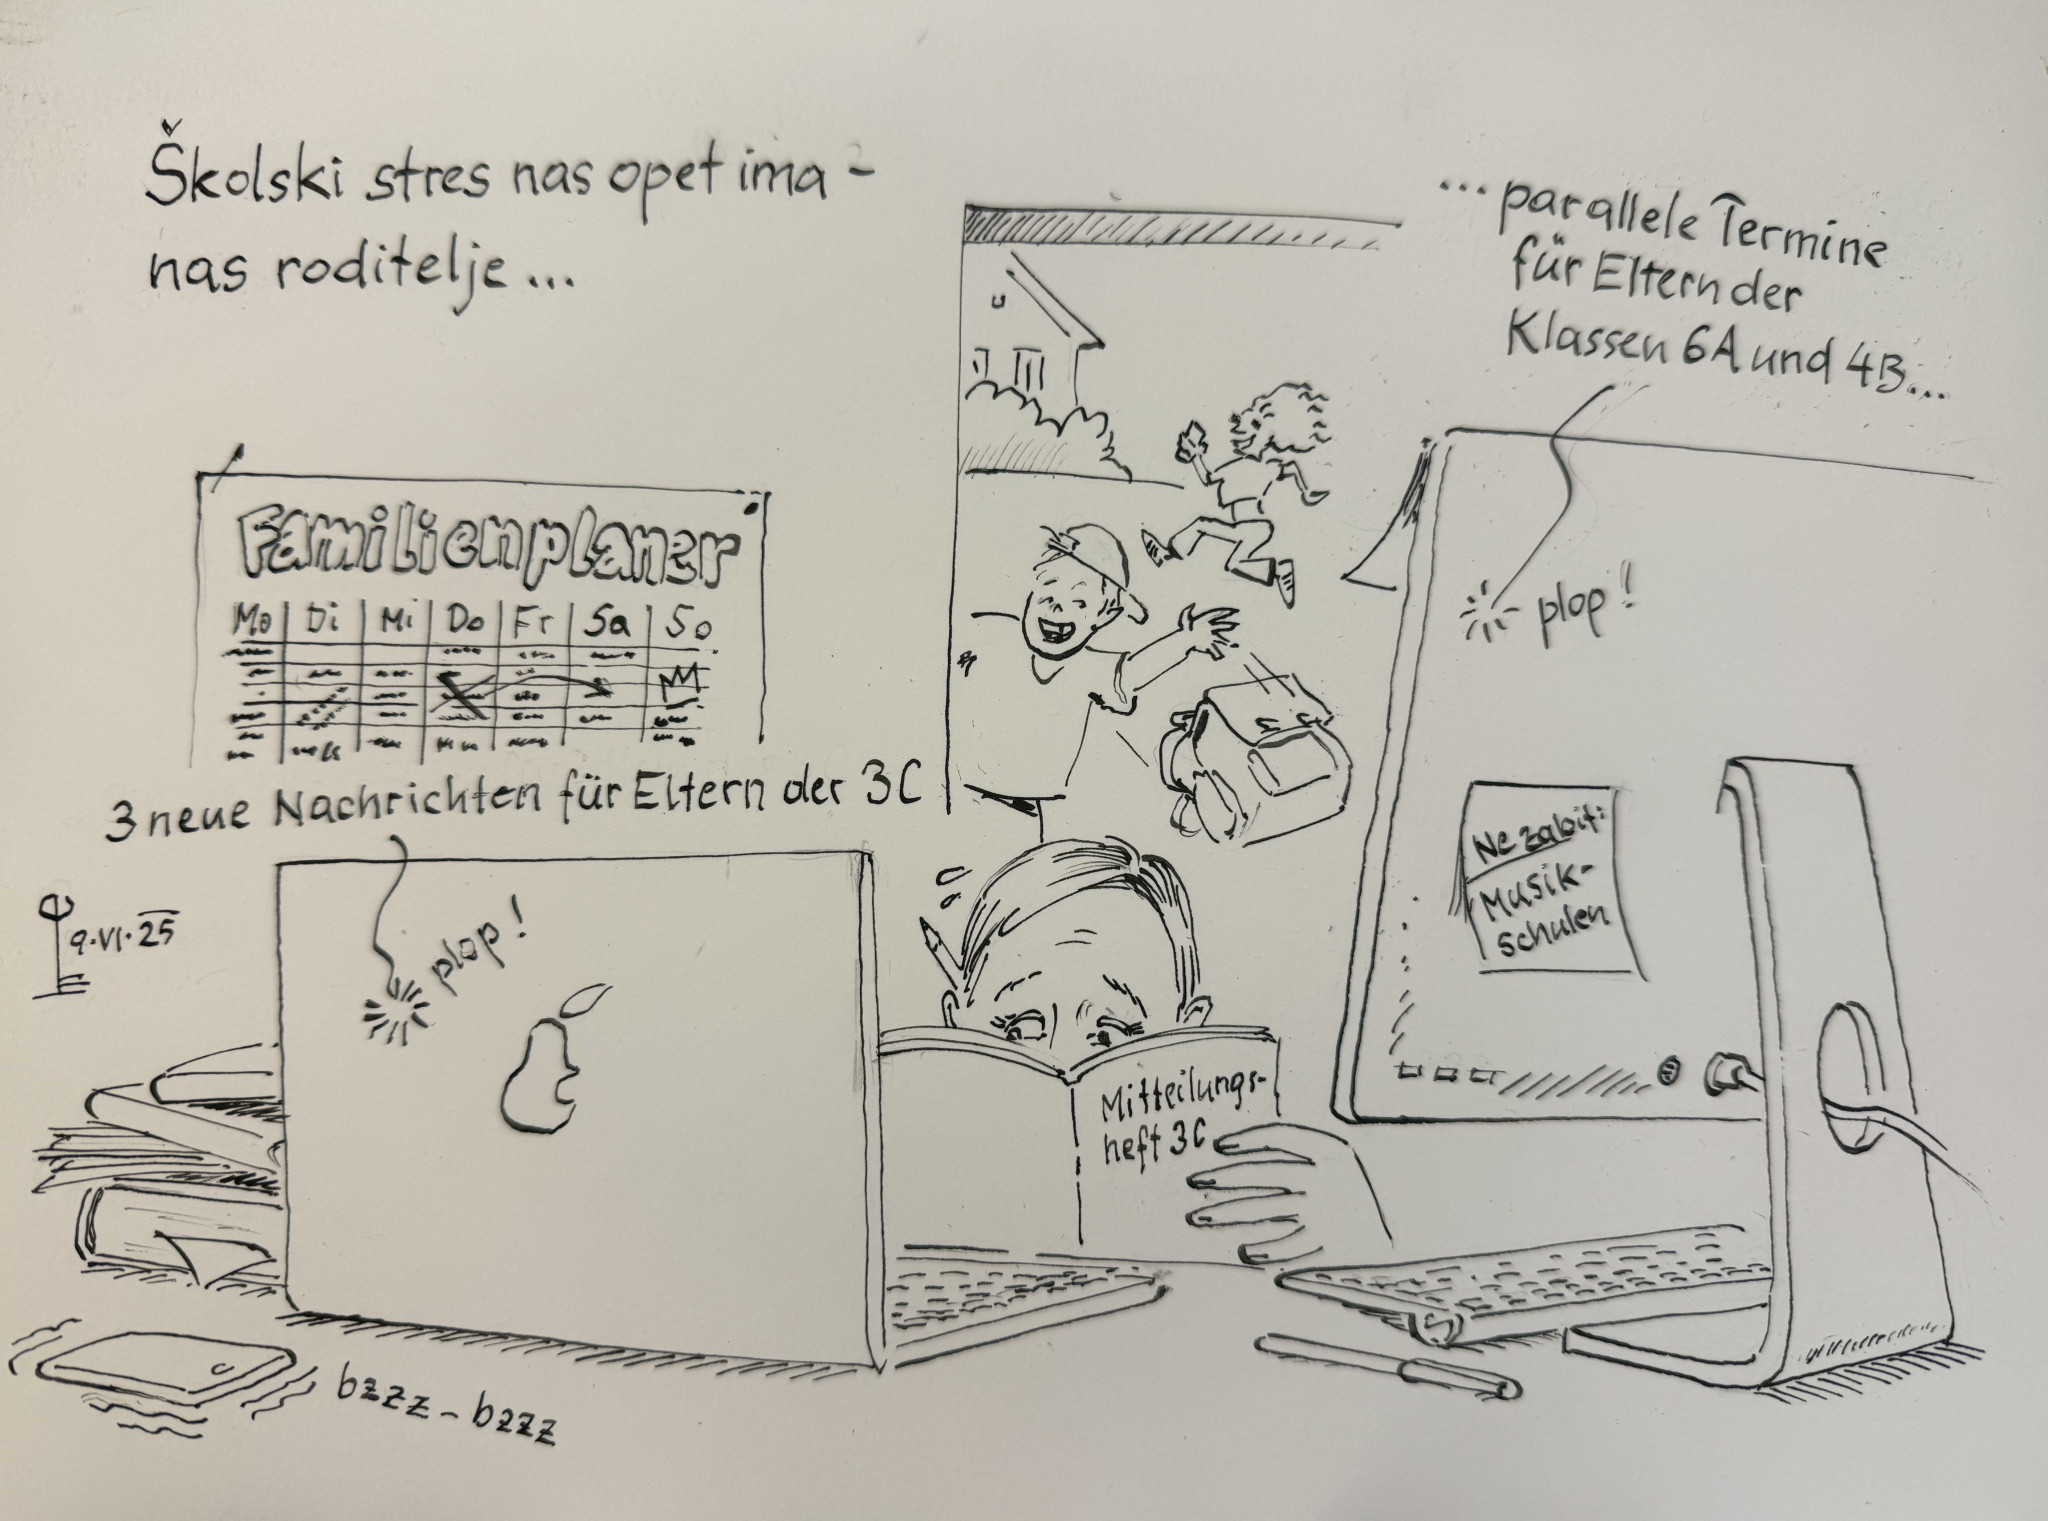 Školski stres nas opet ima -
nas roditelje...
...parallele Termine
für Eltern der
Klassen 6A und 4B...
plop!
Familienplaner
Mo Di Mi Do Fr Sa So
3 neue Nachrichten für Eltern der 3C
plop!
9.VI.25
Ne zabit:
Musik-
schulen
Mitteilungs-
heft 3C
bzzz-bzzz